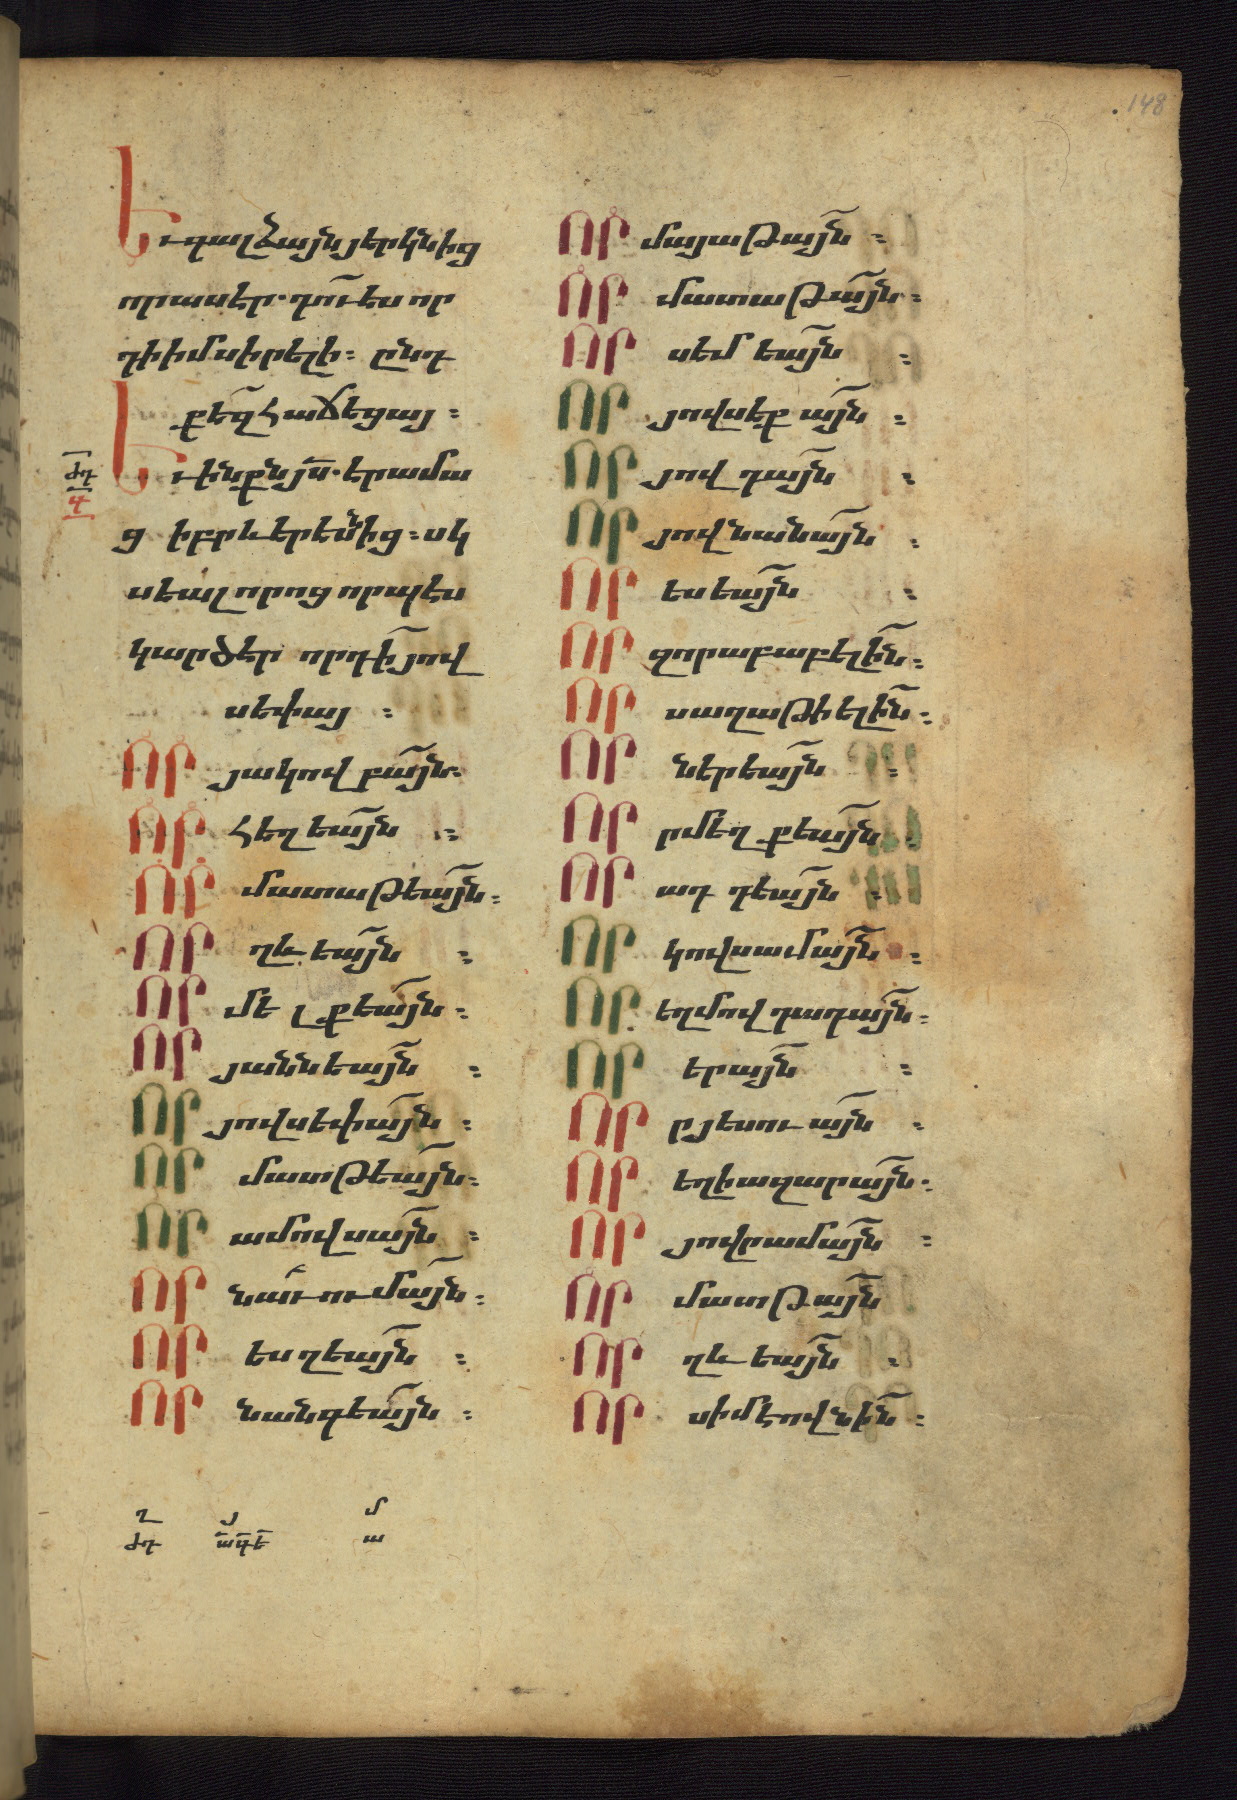 148
Եւ գալ ձայն յերկնից
որ ասէր. դու ես որ
դի իմ սիրելի։ ընդ
քեզ հաճեցայ։
Եւ ինքն յս. երամա
ց իբրև երեսնից։ սկ
սեալ որոց որպէս
կարծէր որդի յով
սեփայ։
ՈՐ յակովբայն։
ՈՐ հեղեայն։
ՈՐ մատաթեայն։
ՈՐ ղևեայն։
ՈՐ մելքեայն։
ՈՐ յաննեայն։
ՈՐ յովսեփայն։
ՈՐ մատթեայն։
ՈՐ ամովսայն։
ՈՐ նաւումայն։
ՈՐ եսղեայն։
ՈՐ նանգեայն։
ՈՐ մայաթայն։
ՈՐ մատաթայն։
ՈՐ սեմեայն։
ՈՐ յովսեքայն։
ՈՐ յովդայն։
ՈՐ յովնանայն։
ՈՐ եսեայն։
ՈՐ զորաբաբելին։
ՈՐ սաղաթիելին։
ՈՐ ներեայն։
ՈՐ րմեղքեայն։
ՈՐ ադդեայն։
ՈՐ կովսամայն։
ՈՐ եղմովդադայն։
ՈՐ երայն։
ՈՐ րյեսուայն։
ՈՐ եղիազարայն։
ՈՐ յովրամայն։
ՈՐ մատթայն
ՈՐ ղևեայն։
ՈՐ սիմէովնին։
ղ յ մ